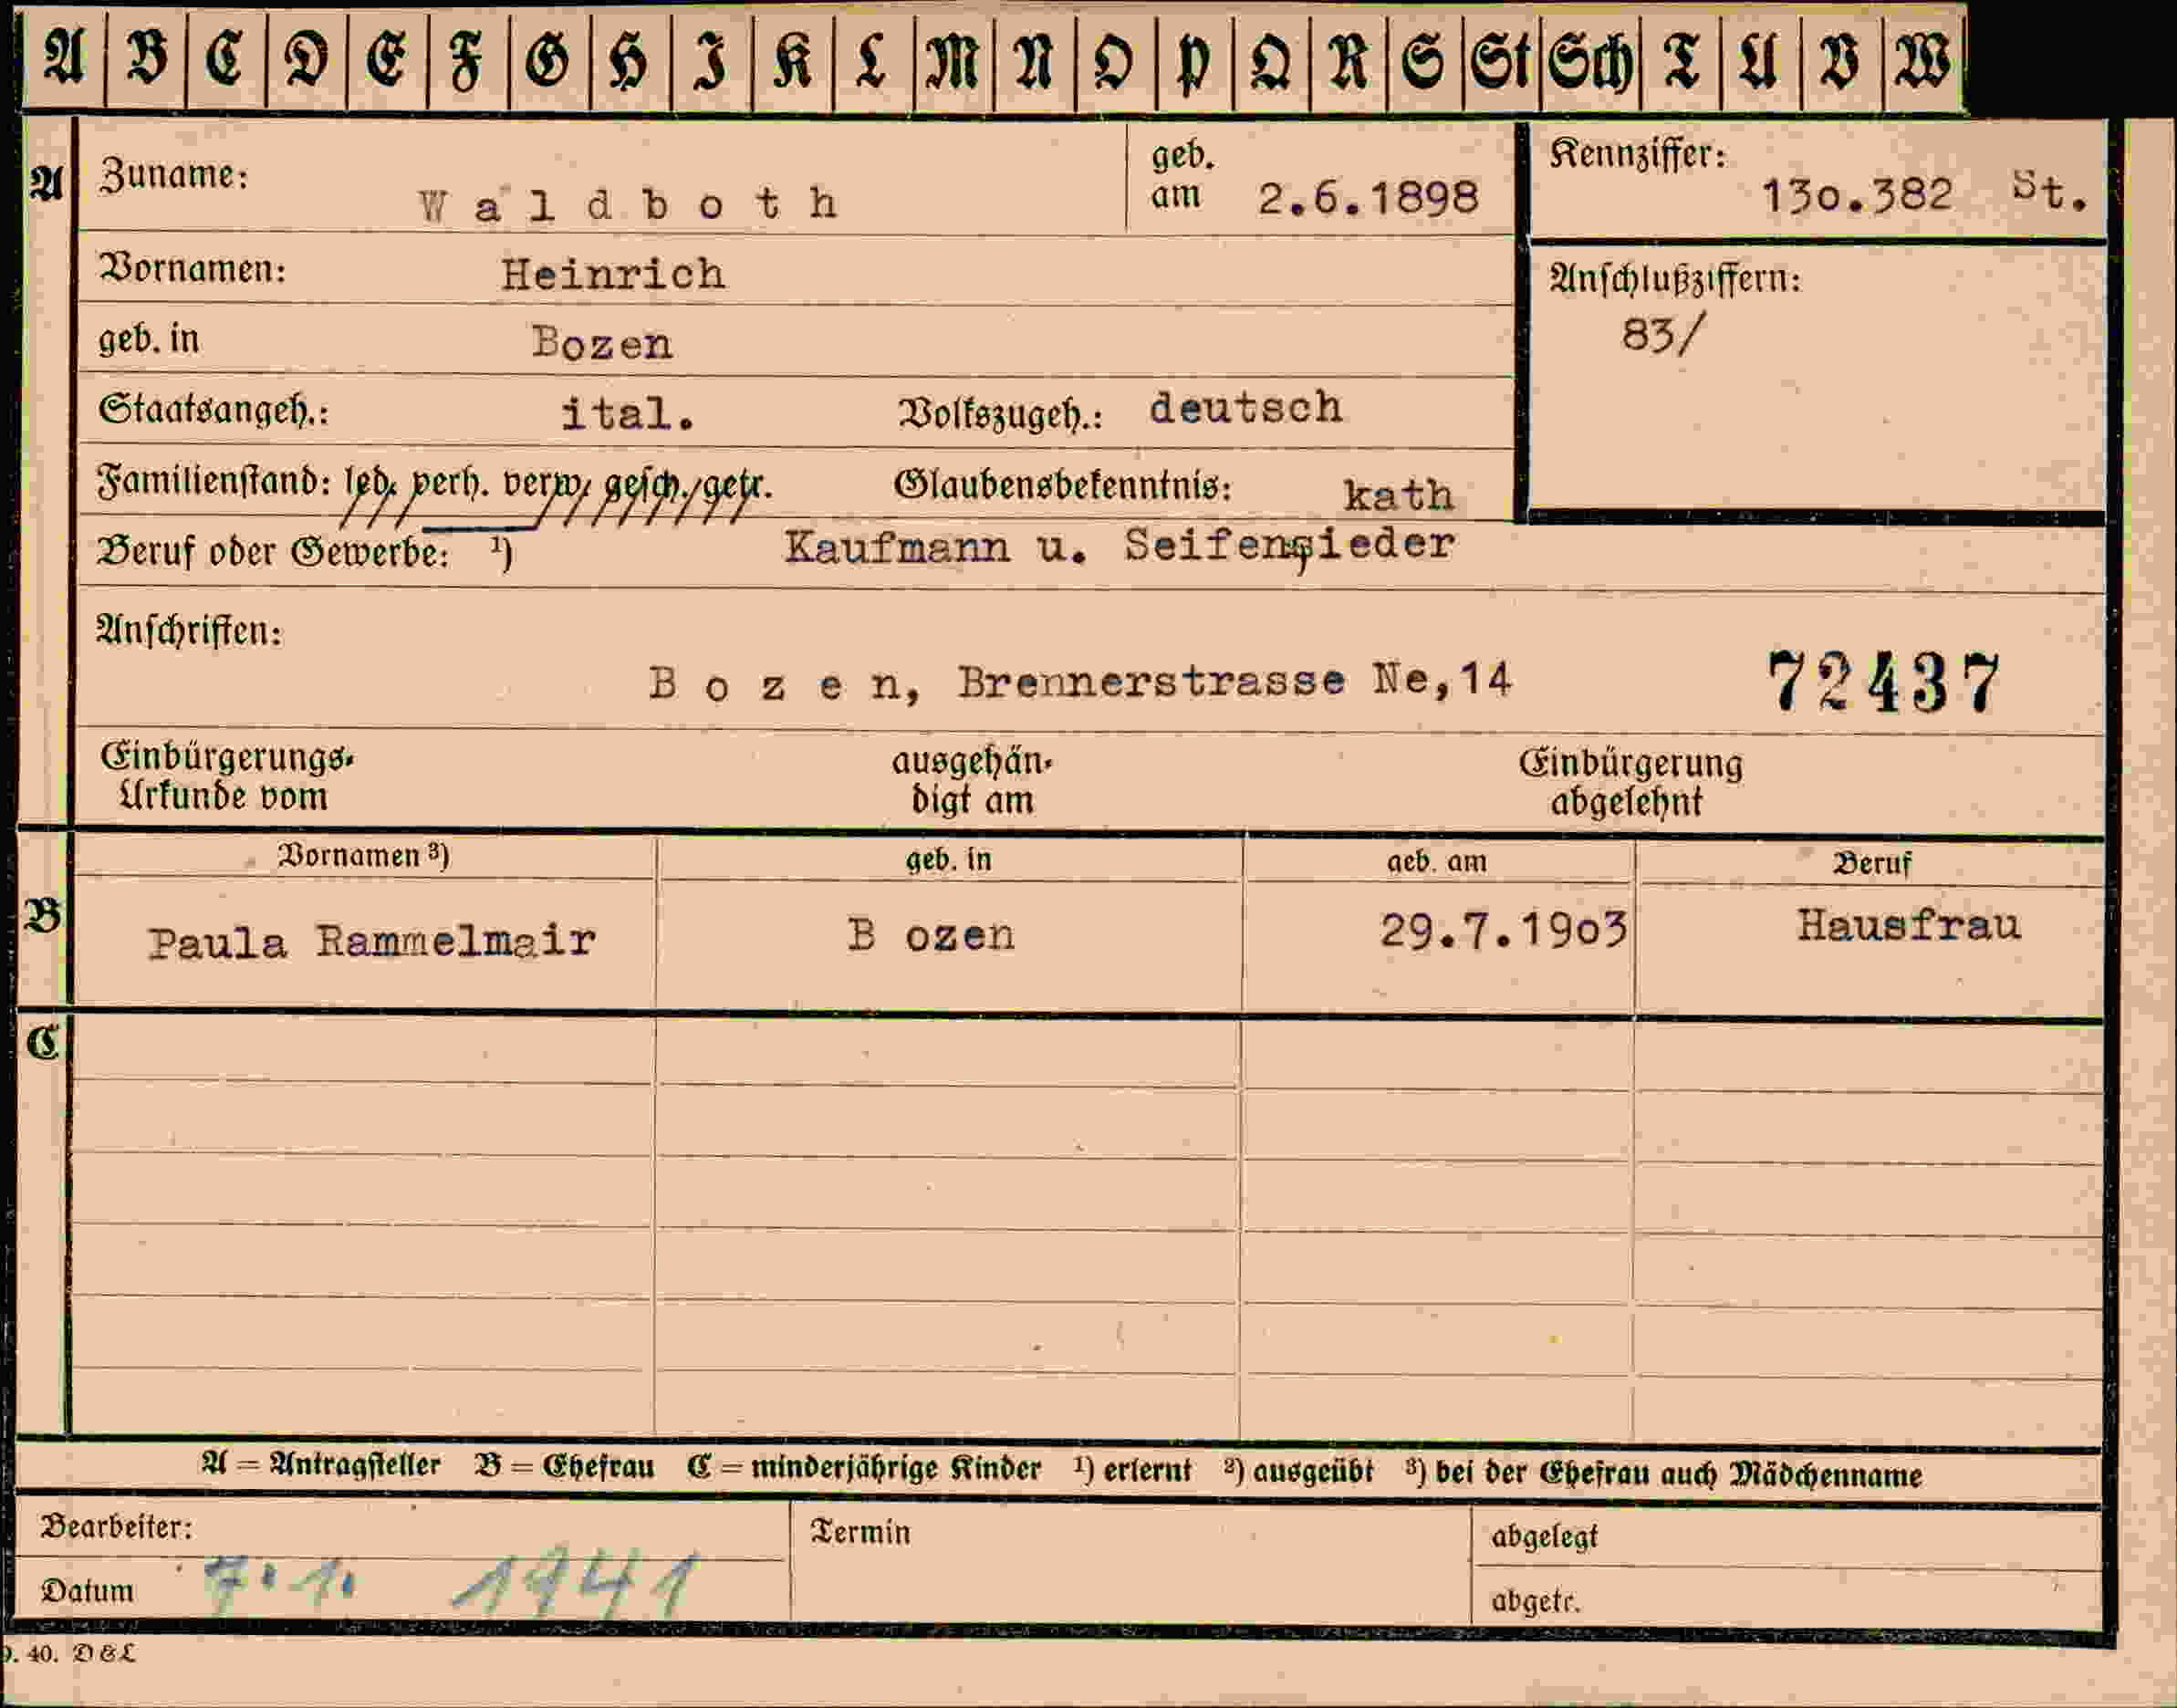 A B C D E F G H I K L M N O P Q R S St Sch T U V W
A Zuname: Waldboth geb. am 2.6.1898 Kennziffer: 130.382 St.
Vornamen: Heinrich Anschlußziffern:
geb. in Bozen 83/
Staatsangeh.: ital. Volkszugeh.: deutsch
Familienstand: led. verh. verw. gesch. getr. Glaubensbekenntnis: kath
Beruf oder Gewerbe: ¹) Kaufmann u. Seifensieder
Anschriften:
Bozen, Brennerstrasse Ne,14 72437
Einbürgerungs- ausgehän- Einbürgerung
Urkunde vom digt am abgelehnt
Vornamen ³) geb. in geb. am Beruf
B Paula Rammelmair B ozen 29.7.1903 Hausfrau
C
A = Antragsteller B = Ehefrau C = minderjährige Kinder ¹) erlernt ²) ausgeübt ³) bei der Ehefrau auch Mädchenname
Bearbeiter: Termin abgelegt
Datum 7.1. 1941 abgetr.
40. D&L